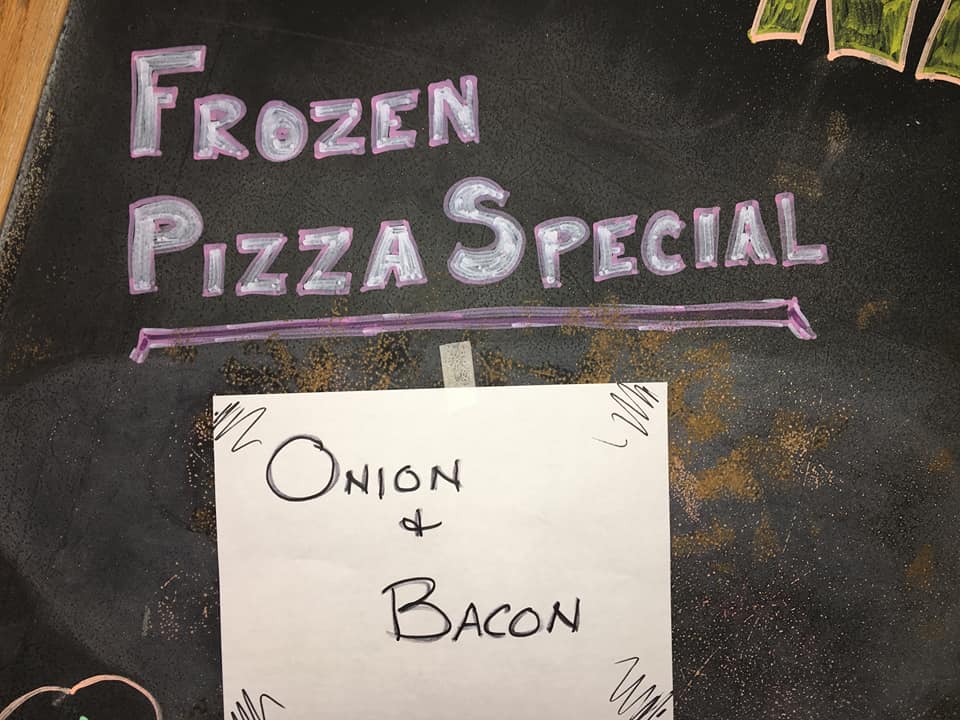 FROZEN
PIZZA SPECIAL
ONION
&
BACON